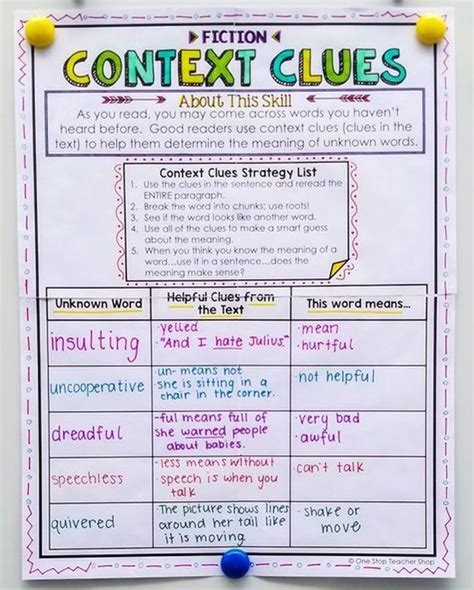 FICTION
CONTEXT CLUES
About This Skill
As you read, you may come across words you haven't
heard before. Good readers use context clues (clues in the
text) to help them determine the meaning of unknown words.
Context Clues Strategy List
1. Use the clues in the sentence and reread the
ENTIRE paragraph.
2. Break the word into chunks; use roots!
3. See if the word looks like another word.
4. Use all of the clues to make a smart guess
about the meaning.
5. When you think you know the meaning of a
word...use it in a sentence...does the
meaning make sense?
Unknown Word
Helpful Clues from
the Text
This word means...
insulting
·yelled
·"And I hate Julius."
·mean
·hurtful
uncooperative
·un- means not
·she is sitting in a
chair in the corner.
·not helpful
dreadful
-ful means full of
She warned people
about babies.
·very bad
·awful
speechless
-less means without
·speech is when you
talk
·can't talk
quivered
·The picture shows lines
around her tail like
it is moving
·shake or
move
© One Stop Teacher Shop